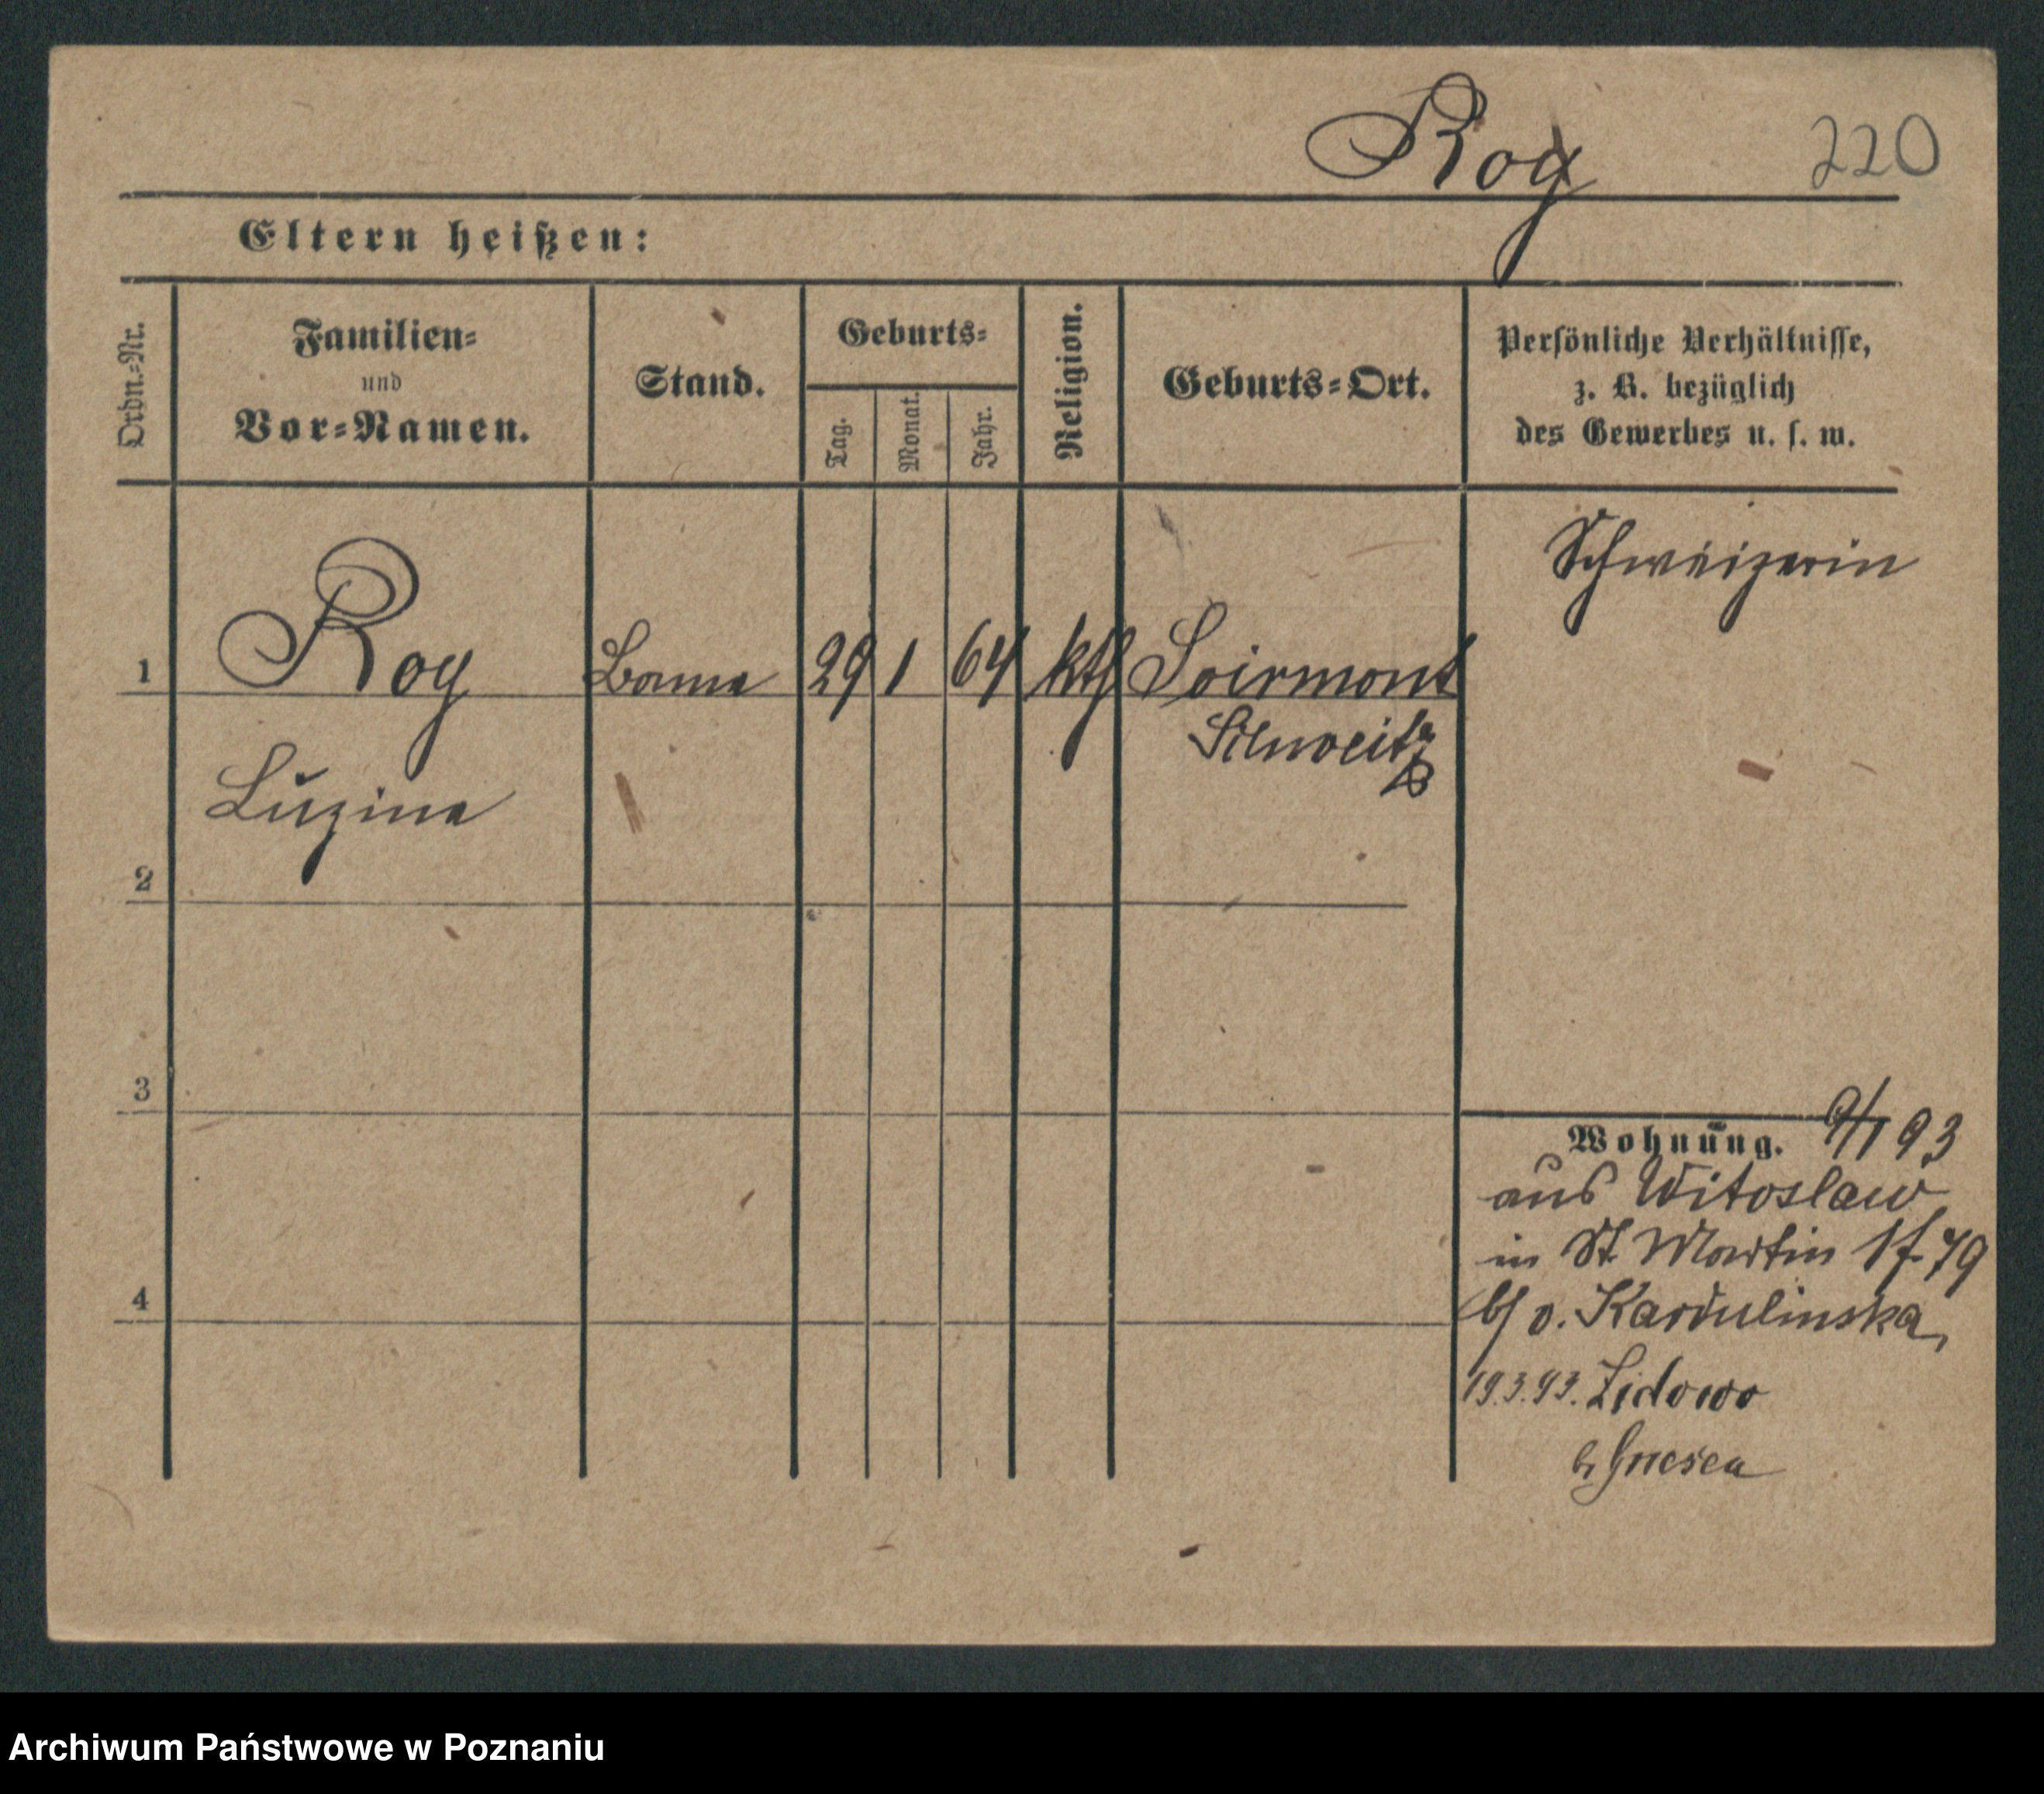 Rog
220
Eltern heißen:
Ordn.-Nr.
Familien-
und
Vor-Namen.
Stand.
Geburts-
Tag.
Monat.
Jahr.
Religion.
Geburts-Ort.
Persönliche Verhältnisse,
z. B. bezüglich
des Gewerbes u. s. w.
Schweizerin
1
Rog
Bonne
29
1
64
kth
Soirmont
Schweitz
Luzine
2
3
4
Wohnung. 9/1 93
aus Witoslaw
in St. Martin 79
b/ v. Kardulinska
19.3.93. Zidowo
b. Gnesen
Archiwum Państwowe w Poznaniu